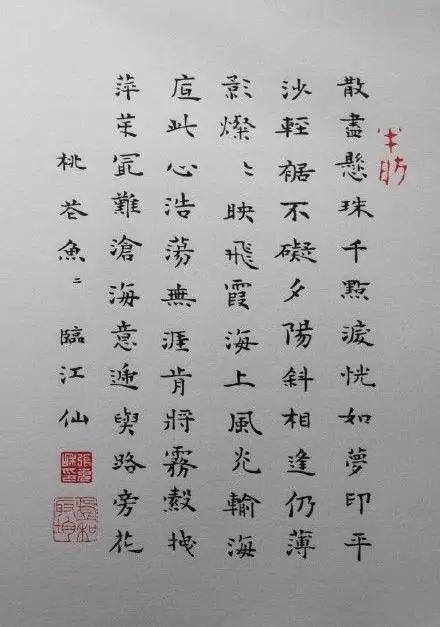 半舫
散盡懸珠千點淚恍如夢印平
沙輕裾不礙夕陽斜相逢仍薄
影燦〻映飛霞海上風光輸海
底此心浩蕩無涯肯將霧縠拽
萍芽冣難滄海意遞與路旁花
桃花魚〻臨江仙